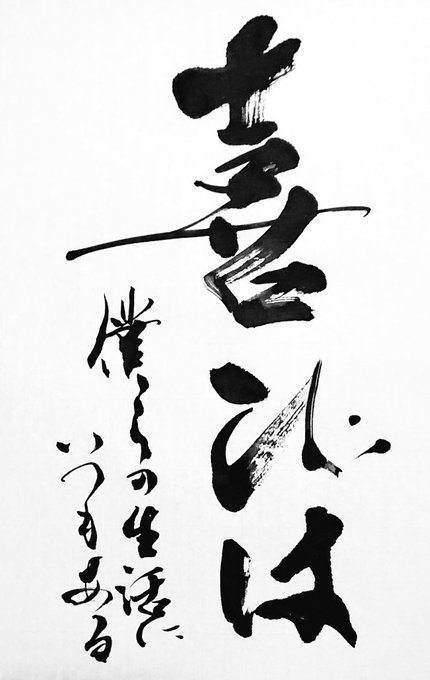 喜びは
僕らの生活に
いつもある